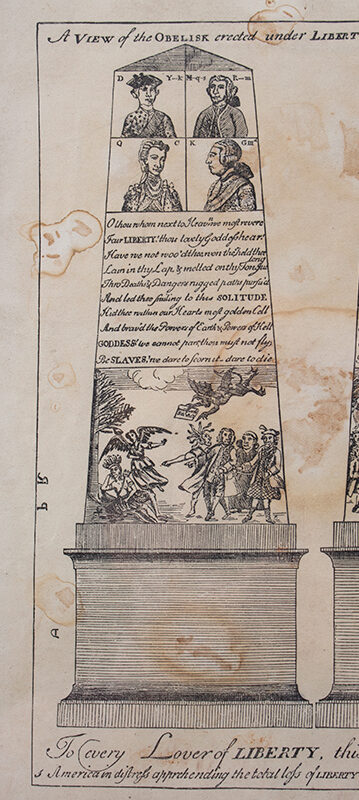 A VIEW of the OBELISK erected under LIBERT
D Y-k M-q-s R-m
Q C K G
O thou whom next to Heav'n we most revere
Fair LIBERTY! thou lovely Goddess hear!
Have we not woo'd thee, won thee, held thee long
Lain in thy Lap, & melted on thy Tongue
Thro Deaths & Dangers rugged paths pursu'd
And led thee smiling to this SOLITUDE
Hid thee within our Hearts most golden Cell
And brav'd the Powers of Earth & Powers of Hell
GODDESS! we cannot part, thou must not fly
Be SLAVES! we dare to scorn it dare to die
To every Lover of LIBERTY, this
s America in distress apprehending the total loss of LIBERTY